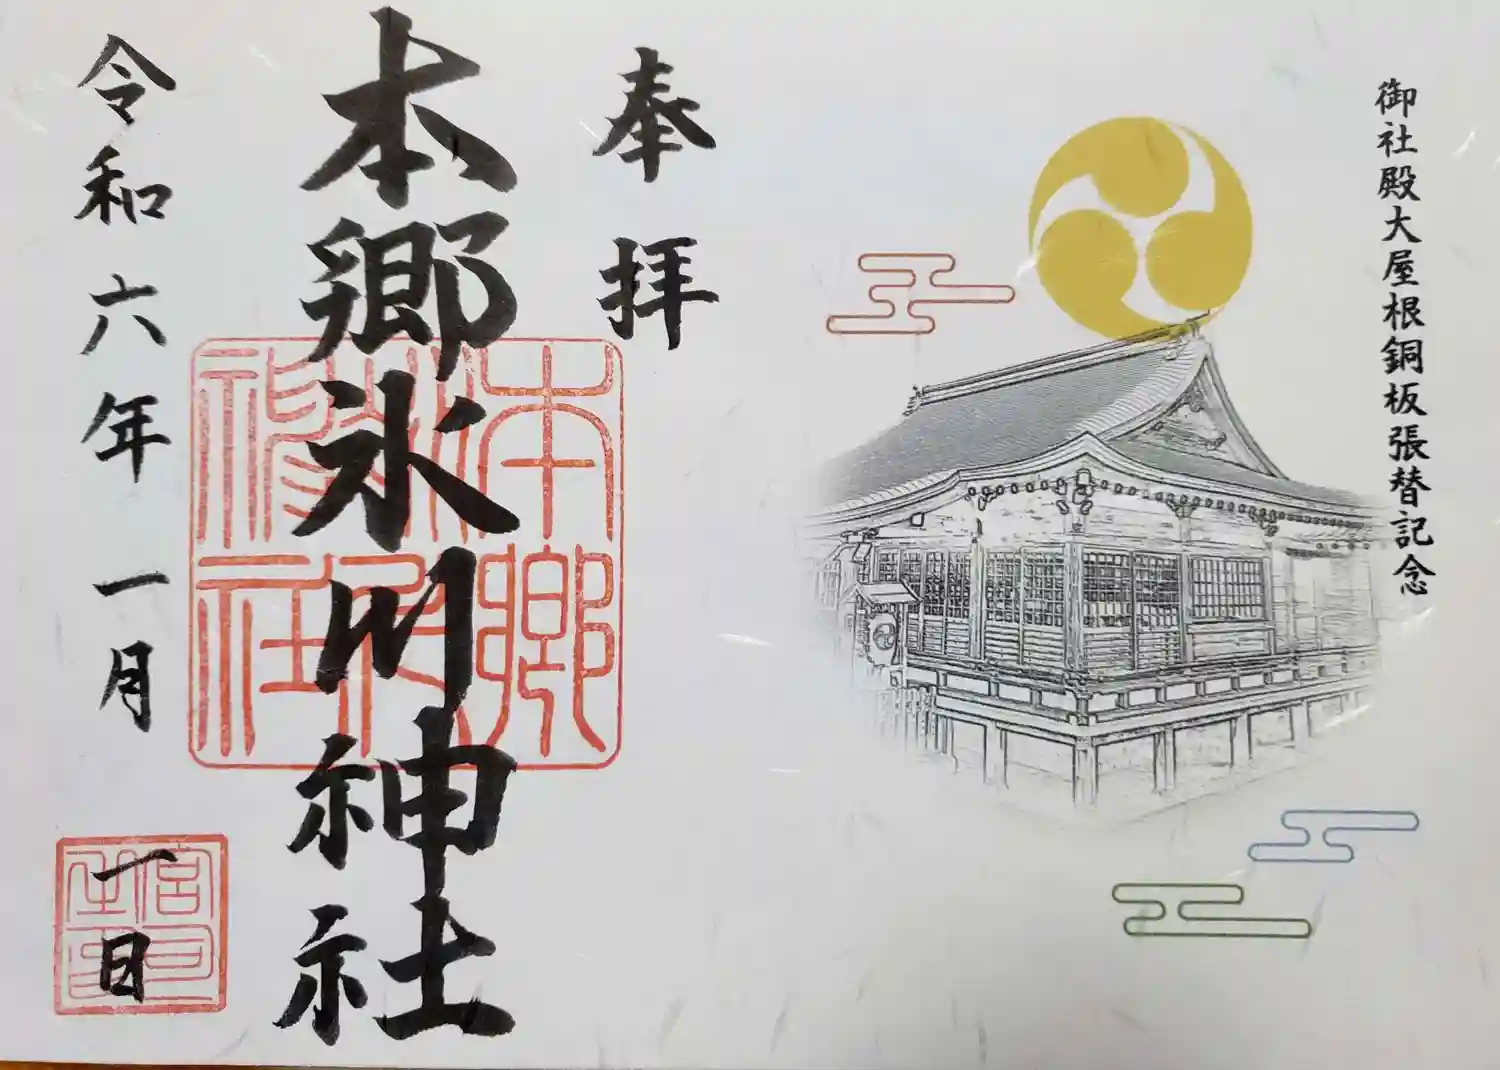 御社殿大屋根銅板張替記念
奉拝
本郷氷川神社
令和六年一月一日
本郷
氷川
神社
宮司
之印